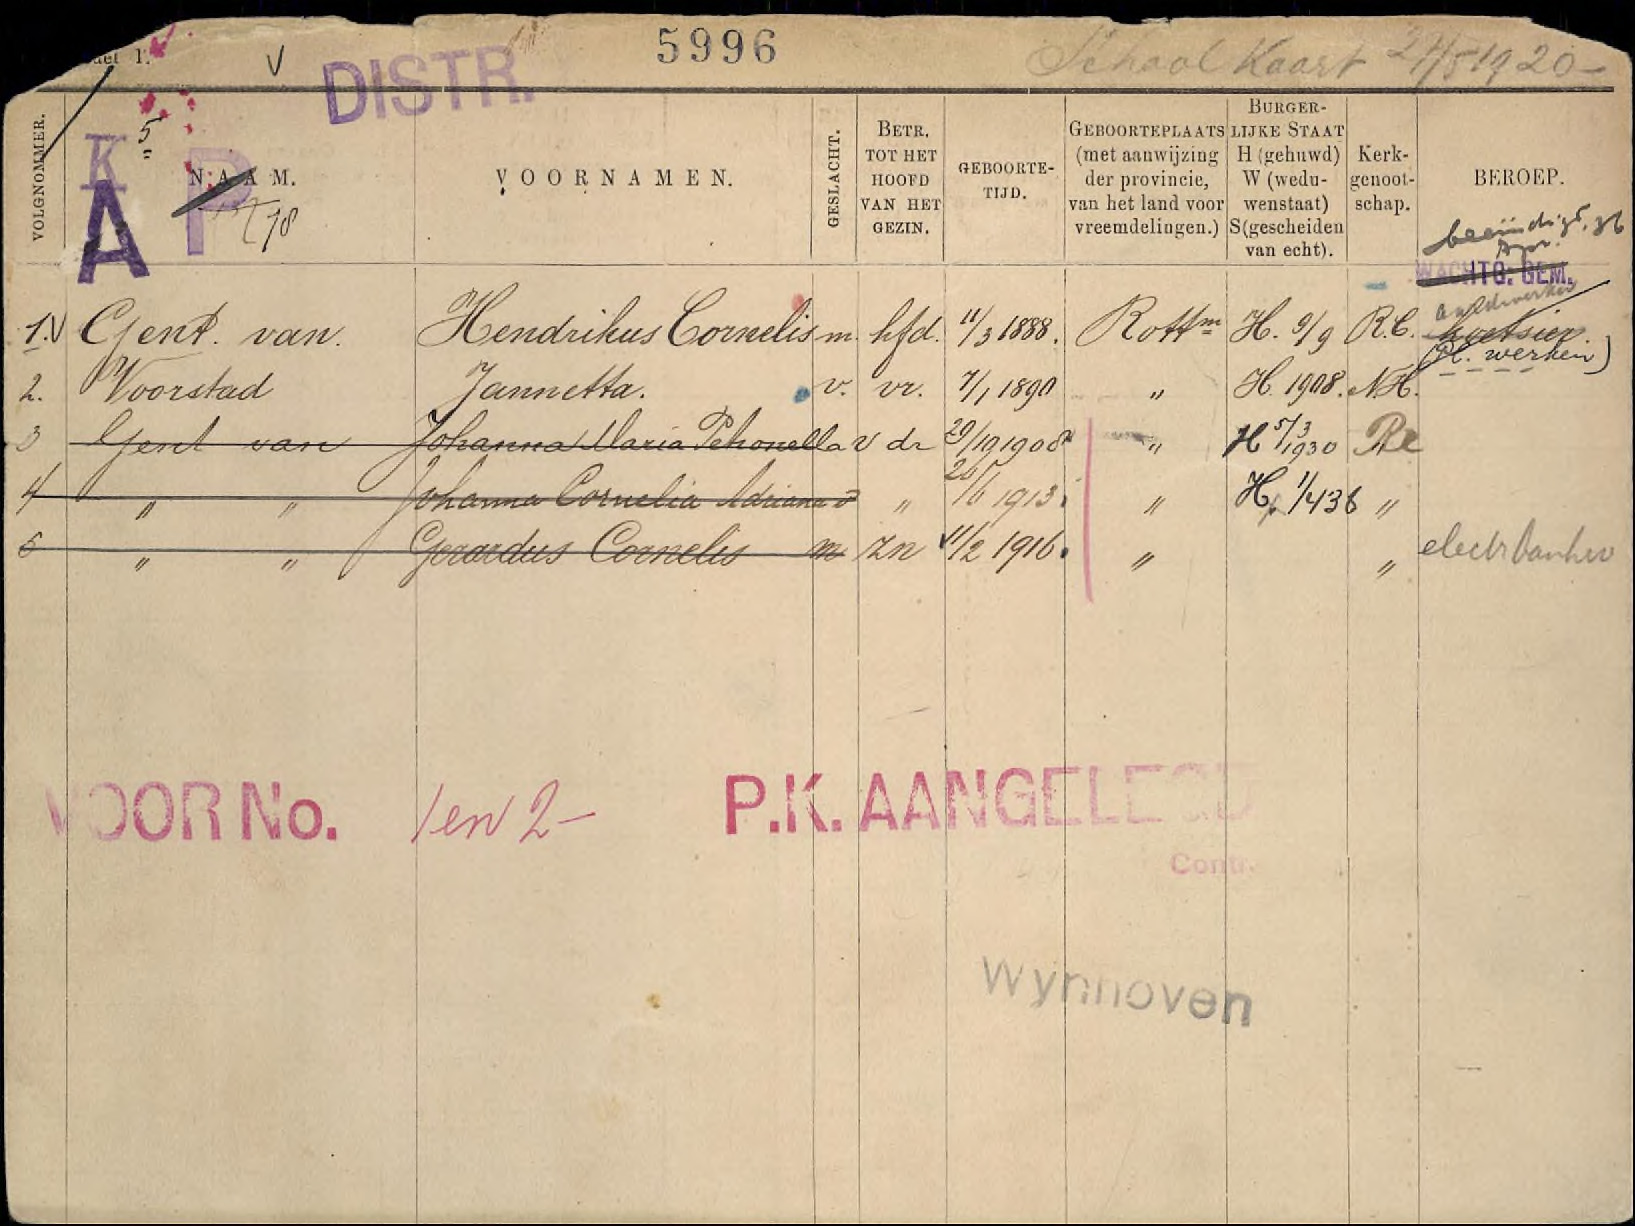 5996
School Kaart 27/5 1920-
DISTR.
5
K
A
P
VOLGNOMMER.
NAAM.
VOORNAMEN.
GESLACHT.
BETR. TOT HET HOOFD VAN HET GEZIN.
GEBOORTE-TIJD.
GEBOORTEPLAATS (met aanwijzing der provincie, van het land voor vreemdelingen.)
BURGER-LIJKE STAAT H (gehuwd) W (wedu-wenstaat) S (gescheiden van echt).
Kerk-genoot-schap.
BEROEP.
beëindigd. 36
Apr.
WACHTG. GEM.
1. Gent. van. Hendrikus Cornelis m. hfd. 11/3 1888. Rottm H. 9/9 R.C. koetsier.
(Pl. werken)
2. Voorstad Jannetta. v. vr. 7/1 1890 " H. 1908. NH.
3 Gent van Johanna Maria Petronella v dr 29/10 1908 " H 5/3 1930 Rc
4 " " Johanna Cornelia Adriana v " 26/6 1913. " H. 1/4 36 "
5 " " Gerardus Cornelis m zn 11/2 1916. " "
VOOR No. 1 en 2- P.K. AANGELEGD
Contr.
Wynhoven